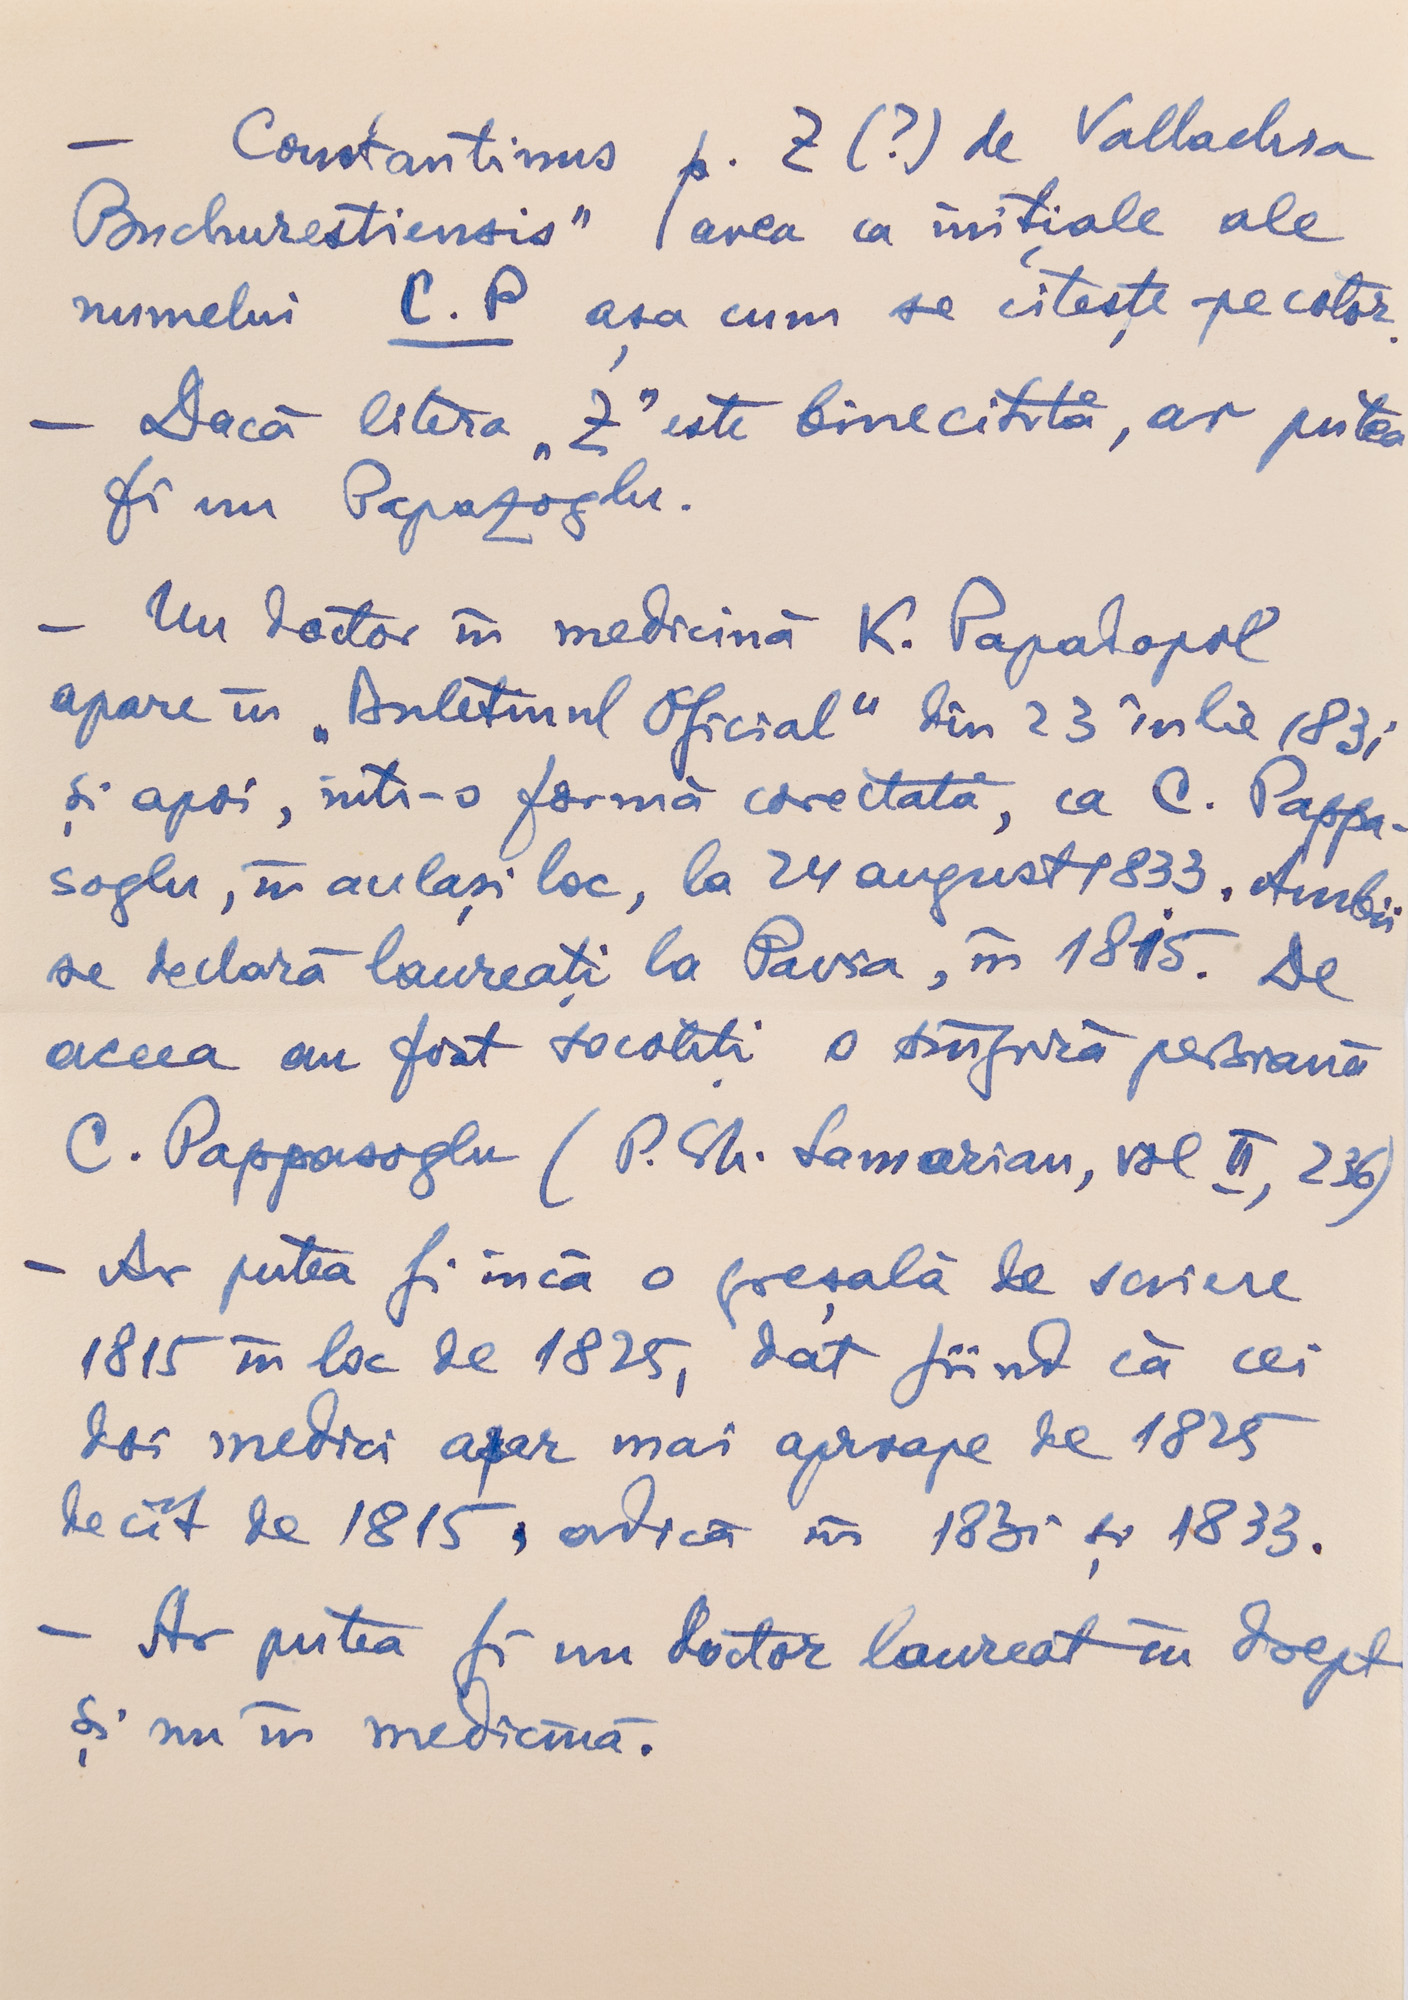 — Constantinus p. Z (?) de Vallachia
Buchurestiensis" (avea ca inițiale ale
numelui C. P așa cum se citește pe cotor.
— Dacă litera „Z" este bine citită, ar putea
fi un Papazoglu.
— Un doctor în medicină K. Papadopol
apare în „Buletinul Oficial" din 23 iulie 1831
și apoi, într-o formă corectată, ca C. Pappa-
soglu, în același loc, la 24 august 1833. Ambii
se declară laureați la Pavia, în 1815. De
aceea au fost socotiți o singură persoană
C. Pappasoglu (P. Gh. Samarian, vol II, 236)
— Ar putea fi încă o greșală de scriere
1815 în loc de 1825, dat fiind că cei
doi medici apar mai aproape de 1825
decît de 1815, adică în 1831 și 1833.
— Ar putea fi un doctor laureat în drept
și nu în medicină.